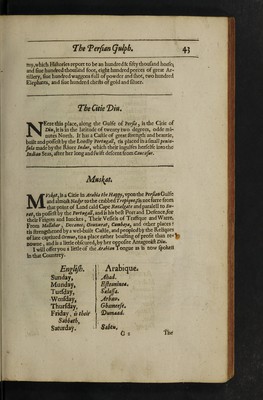 The Persian Gulph. 43
my, which Histories report to be an hundred & fifty thousand horse,
and five hundred thousand foot, eight hundred peeces of great Ar-
tillery, five hundred waggons full of powder and shot, two hundred
Elephants, and five hundred chests of gold and silver.
The Citie Diu.
NEere this place, along the Gulfe of Persia, is the Citie of
Diu, it is in the latitude of twenty two degrees, odde mi-
nutes North. It has a Castle of great strength and beautie,
built and possest by the Lordly Portugall, tis placed in a small penin-
sula made by the River Indus, which there ingulfes herselfe into the
Indian Seas, after her long and swift descent from Caucasus.
Muskat.
MUskat, is a Citie in Arabia the Happy, upon the Persian Gulfe
and almost Nadyr to the crabbed Tropique, tis not farre from
that point of Land cald Cape Rozalgate and paralell to
tis possest by the Portugall, and is his best Port and Defence, for
their Frigots and Junckes, Their Vessels of Traffique and Warre,
From Mallabar, Decanee, Guzurat, Cambaya, and other places:
tis strengthened by a wel-built Castle, and peopled by the Reliques
of late captived Ormus, tis a place rather boasting of profit than re-
nowne, and is a little obscured, by her opposite Antagonist Diu.
I will offer you a little of the Arabian Tongue as is now spoken
in that Countrey.
English. Arabique.
Sunday, Ahad.
Munday, Estaminea.
Tuesday, Salassa.
Wensday, Arbaw.
Thursday, Ghamesse.
Friday, is their Dumaad.
Sabbath,
Saturday. Sabtu.
G 2 The